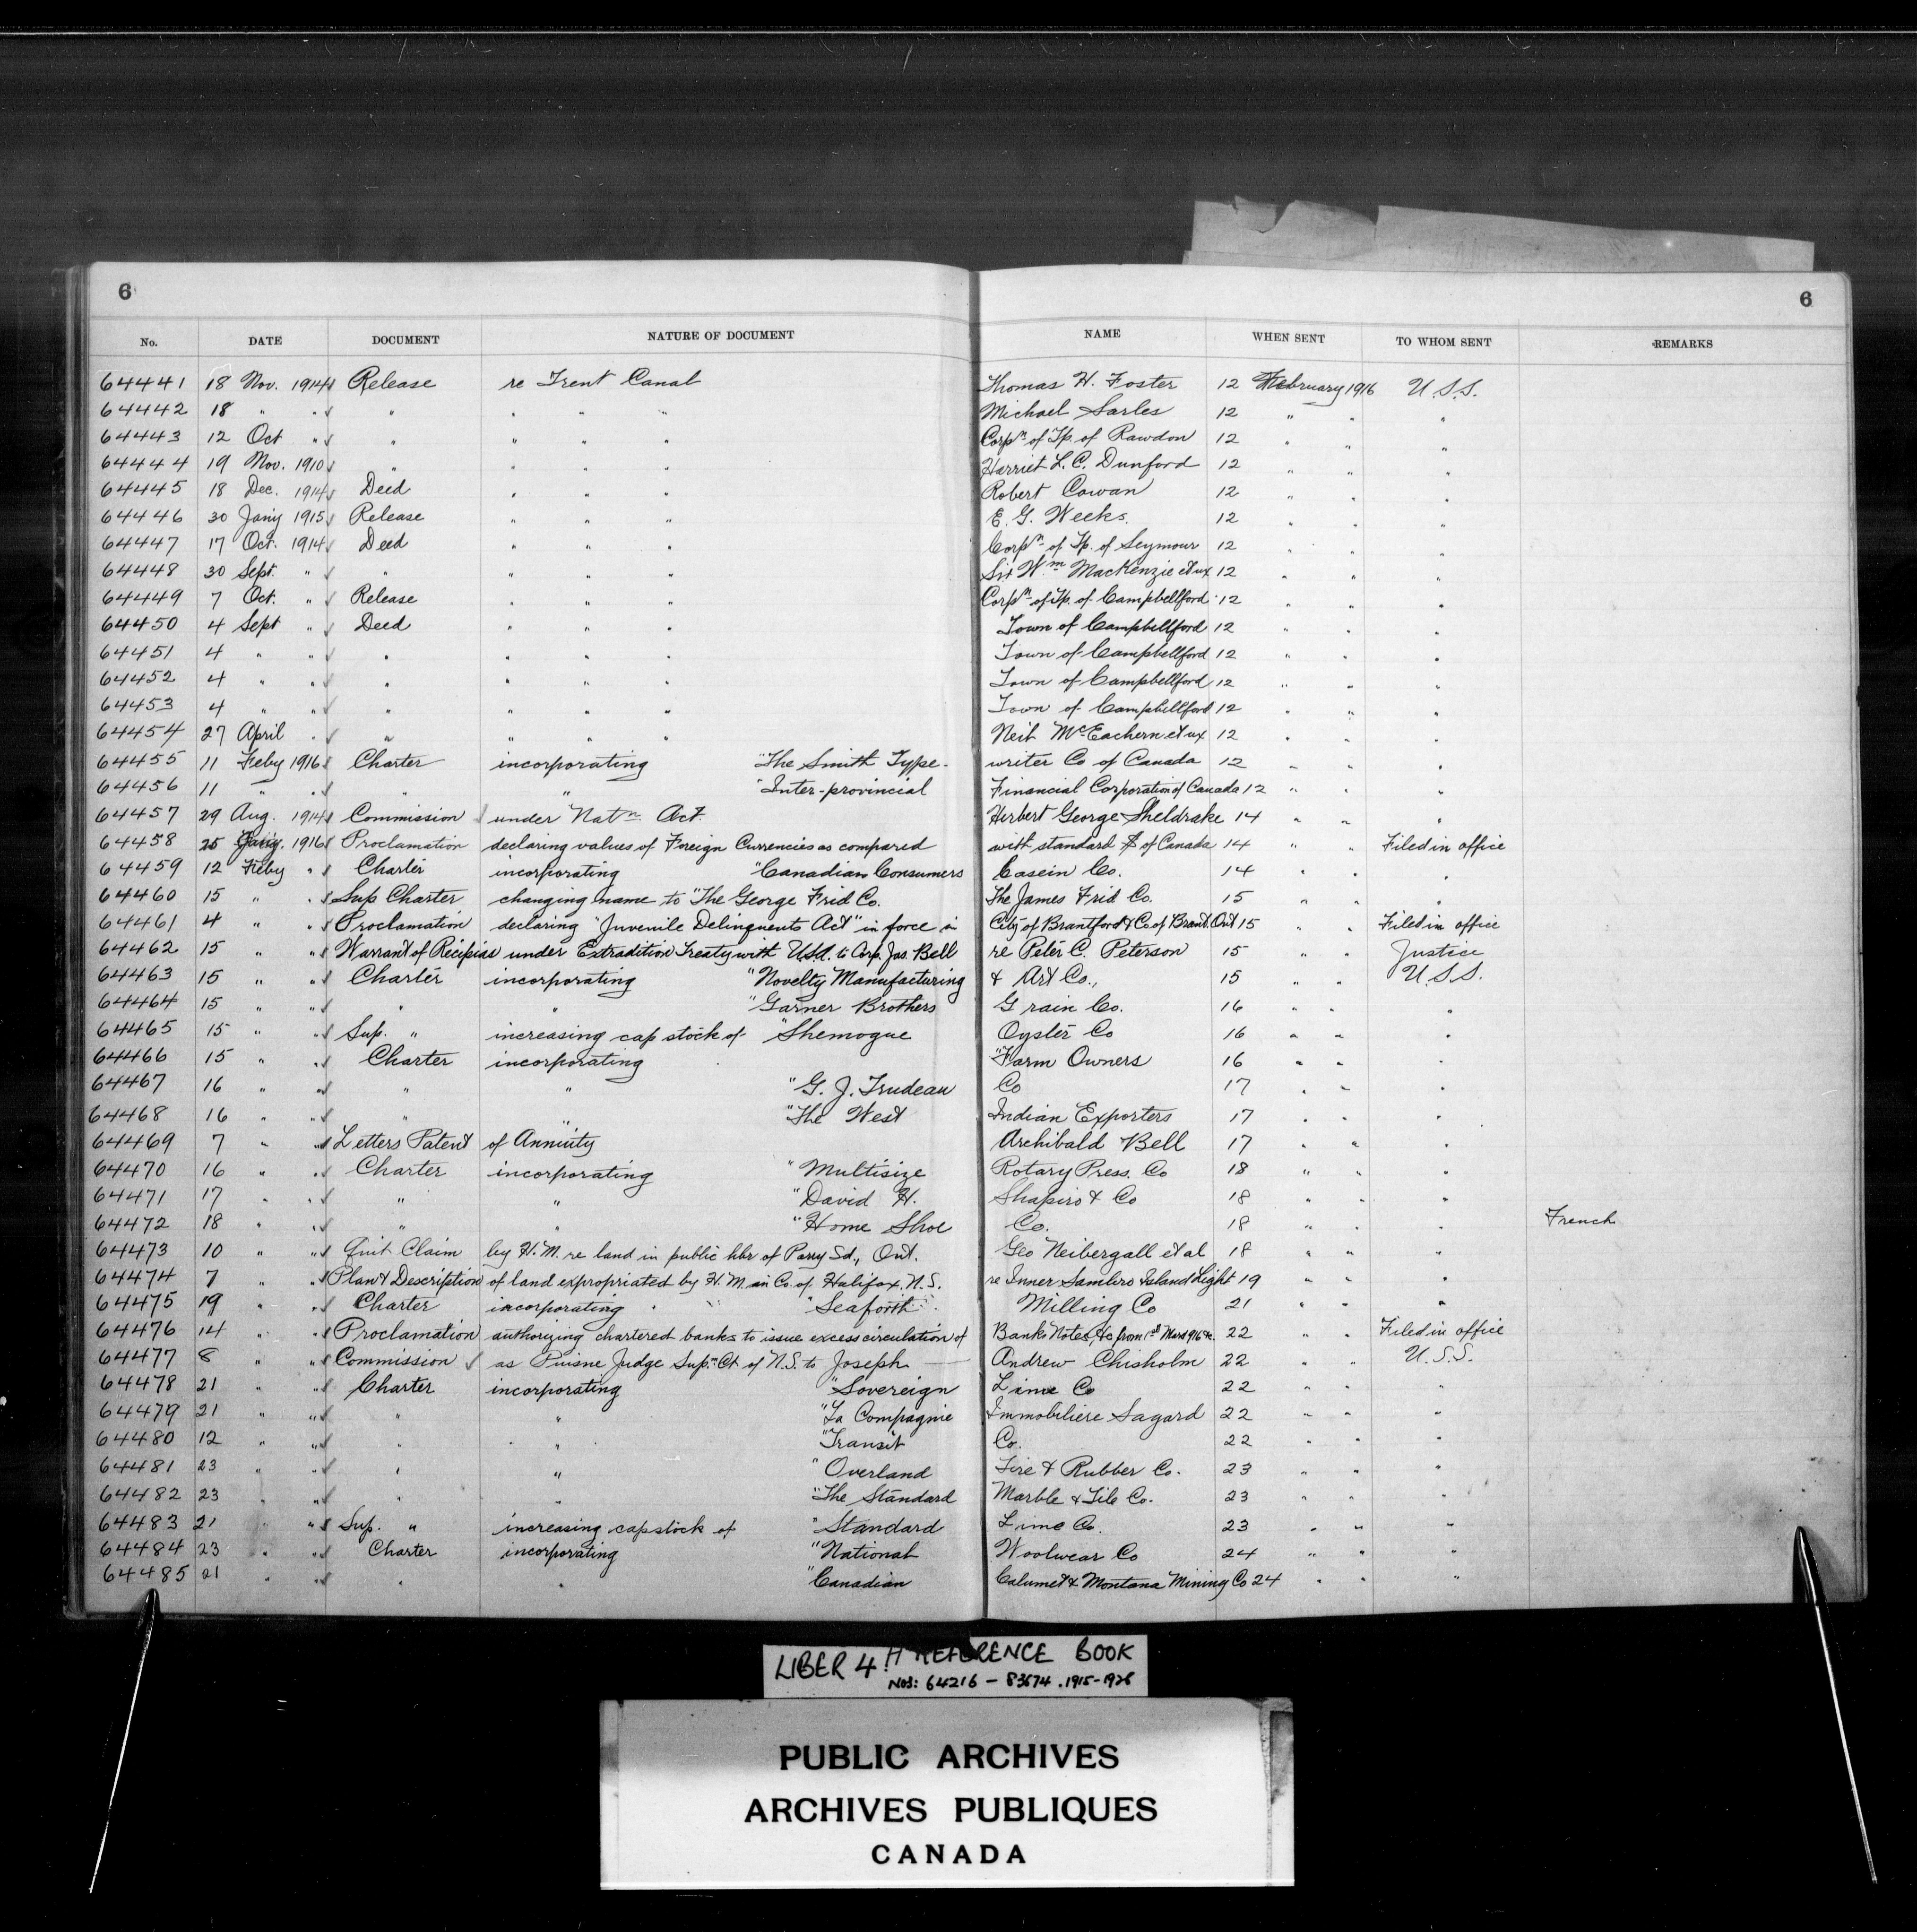 6 6
No. DATE DOCUMENT NATURE OF DOCUMENT NAME WHEN SENT TO WHOM SENT REMARKS
64441 18 Nov. 1914 Release re Trent Canal Thomas H. Foster 12 February 1916 U.S.S.
64442 18 " " " " " " Michael Sarles 12 " " "
64443 12 Oct " " " " " Corpn of Tp. of Rawdon 12 " " "
64444 19 Nov. 1910 " " " " Harriet L. C. Dunford 12 " " "
64445 18 Dec. 1914 Deed " " " Robert Cowan 12 " " "
64446 30 Jan'y 1915 Release " " " E. G. Weeks. 12 " " "
64447 17 Oct. 1914 Deed " " " Corpn of Tp. of Seymour 12 " " "
64448 30 Sept. " " " " " Sir Wm MacKenzie et ux 12 " " "
64449 7 Oct. " Release " " " Corpn of Tp. of Campbellford 12 " " "
64450 4 Sept " Deed " " " Town of Campbellford 12 " " "
64451 4 " " " " " " Town of Campbellford 12 " " "
64452 4 " " " " " " Town of Campbellford 12 " " "
64453 4 " " " " " " Town of Campbellford 12 " " "
64454 27 April " " " " " Neil McEachern et ux 12 " " "
64455 11 Feby 1916 Charter incorporating "The Smith Type- writer Co of Canada 12 " " "
64456 11 " " " " "Inter-provincial Financial Corporation of Canada 12 " " "
64457 29 Aug. 1914 Commission under Natn Act. Herbert George Sheldrake 14 " " "
64458 25 Jan'y. 1916 Proclamation declaring values of Foreign Currencies as compared with standard $ of Canada 14 " " Filed in office
64459 12 Feby " Charter incorporating "Canadian Consumers Casein Co. 14 " " "
64460 15 " " Sup Charter changing name to "The George Frid Co. The James Frid Co. 15 " " "
64461 4 " " Proclamation declaring "Juvenile Delinquents Act" in force in City of Brantford & Co. of Brant. Ont 15 " " Filed in office
64462 15 " " Warrant of Recipias under Extradition Treaty with U.S.A. to Corp. Jas. Bell re Peter C. Peterson 15 " " Justice
64463 15 " " Charter incorporating "Novelty Manufacturing & Art Co., 15 " " U.S.S.
64464 15 " " " " "Garner Brothers Grain Co. 16 " " "
64465 15 " " Sup. " increasing cap stock of "Shemogue Oyster Co 16 " " "
64466 15 " " Charter incorporating "Farm Owners 16 " " "
64467 16 " " " " "G. J. Trudeau Co 17 " " "
64468 16 " " " " "The West Indian Exporters 17 " " "
64469 7 " " Letters Patent of Annuity Archibald Bell 17 " " "
64470 16 " " Charter incorporating "Multisize Rotary Press. Co 18 " " "
64471 17 " " " " "David H. Shapiro & Co 18 " " "
64472 18 " " " " "Home Shoe Co. 18 " " " French
64473 10 " " Quit Claim by H.M. re land in public hbr of Parry Sd., Ont. Geo Neibergall et al 18 " " "
64474 7 " " Plan & Description of land expropriated by H.M. in Co. of Halifax, N.S. re Inner Sambro Island Light 19 " " "
64475 19 " " Charter incorporating "Seaforth Milling Co 21 " " "
64476 14 " " Proclamation authorizing chartered banks to issue excess circulation of Banks Notes, &c from 1st Mar 1916 &c. 22 " " Filed in office
64477 8 " " Commission as Puisne Judge Supm Ct of N.S. to Joseph Andrew Chisholm 22 " " U.S.S.
64478 21 " " Charter incorporating "Sovereign Lime Co 22 " " "
64479 21 " " " " "La Compagnie Immobiliere Sagard 22 " " "
64480 12 " " " " "Transit Co. 22 " " "
64481 23 " " " " "Overland Tire & Rubber Co. 23 " " "
64482 23 " " " " "The Standard Marble & Tile Co. 23 " " "
64483 21 " " Sup. " increasing cap stock of "Standard Lime Co. 23 " " "
64484 23 " " Charter incorporating "National Woolwear Co 24 " " "
64485 21 " " " " "Canadian Calumet & Montana Mining Co 24 " " "
LIBER 4 H REFERENCE BOOK
NOS: 64216 - 83674 . 1915-1928
PUBLIC ARCHIVES
ARCHIVES PUBLIQUES
CANADA